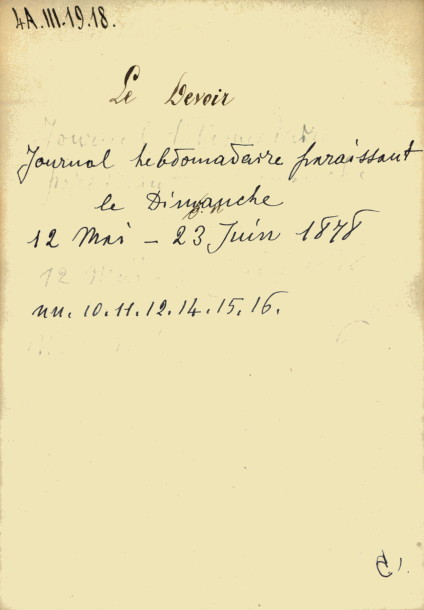 4A.III.19.18.
Le Devoir
Journal hebdomadaire paraissant
le Dimanche
12 Mai – 23 Juin 1878
nn. 10.11.12.14.15.16.